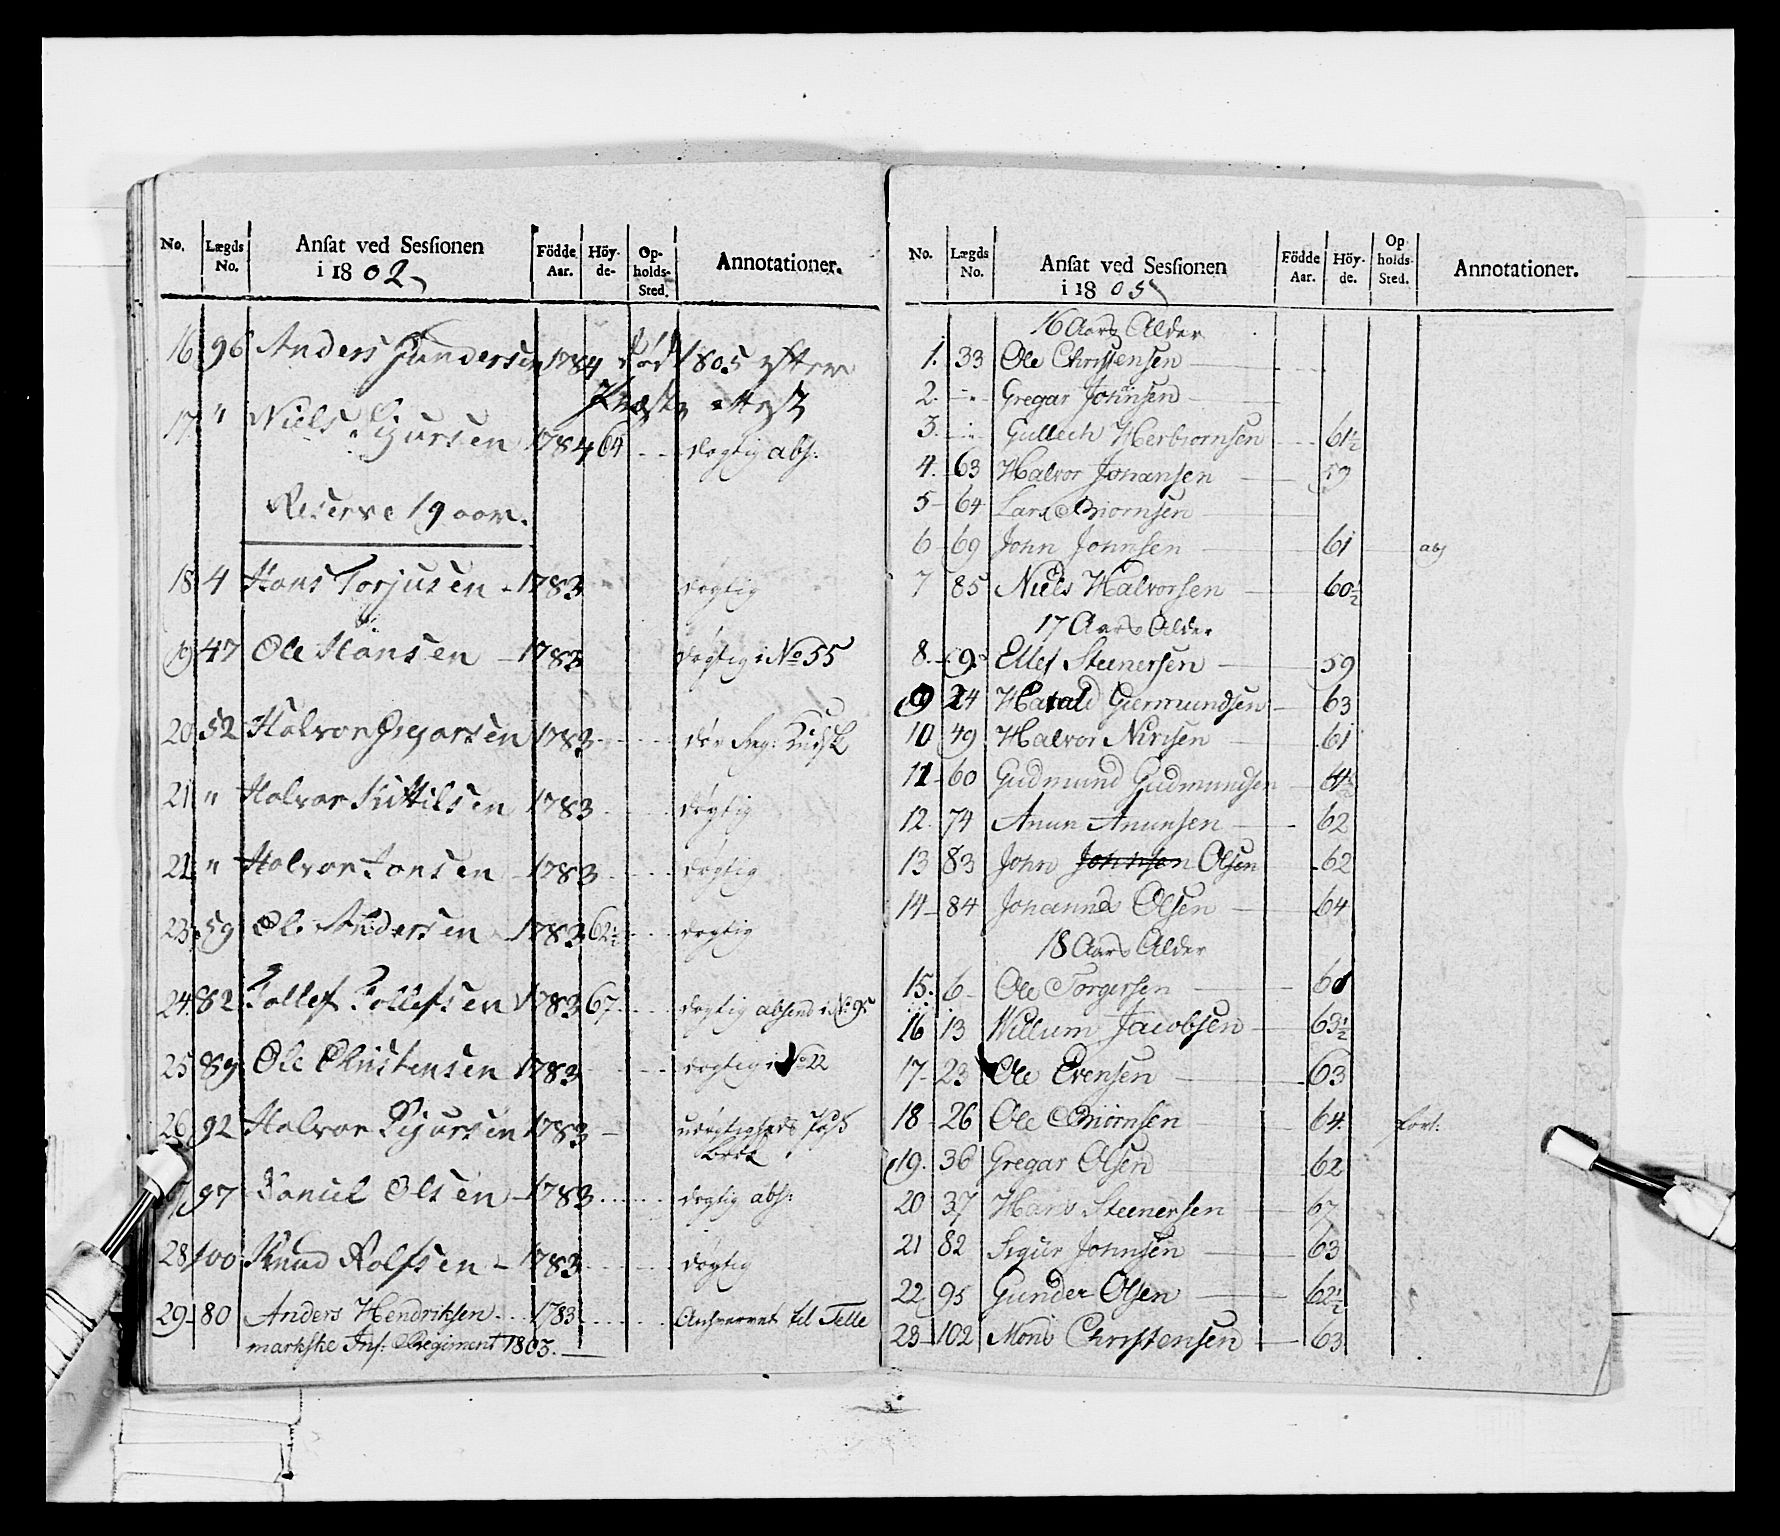 No. Lægds No. Ansat ved Sessionen i 1802 Födde Aar. Höy-de- Op-holds-Sted. Annotationer.
16 96 Anders Gundersen 1784 død 1805 efter
Præste attest
17 " Niels Sigursen 1784 64 dygtig abs:
Reserve 19 aar.
18 4 Hans Torjusen 1783 dygtig
19 47 Ole Hansen 1783 dygtig i No 55
20 52 Halvor Gregarsen 1783
21 " Halvor Kittilsen 1783 dygtig
21 " Halvor Jansen 1783 dygtig
23 59 Ole Andersen 1783 62½ dygtig
24 82 Tollef Tollefsen 1783 67 dygtig absend i No 95
25 89 Ole Christensen 1783 dygtig i No 22
26 92 Halvor Sigursen 1783 udygtigheds Pass
97 Daniel Olsen 1783 dygtig abs:
28 100 Knud Rolfsen 1783 dygtig
29 80 Anders Hendriksen 1783 til Telle
markske Inf: Regiment 1803.
No. Lægds No. Ansat ved Sessionen i 1805 Födde Aar. Höy-de. Op holds-Sted. Annotationer.
16 Aars Alder
1. 33 Ole Christensen
2. - " - Gregar Johnsen
3. - " - Gullech Herbiornsen 61½
4. 63 Halvor Johansen 59
5 64 Lars Biornsen
6 69 John Johnsen 61 abs
7 85 Niels Halvorsen 60½
17 Aars Alder
8. 9. Ellef Steenersen 59
9 24 Harald Giermundsen 63
10 49 Halvor Nirisen 61
11 60 Gudmund Gudmundsen
12. 74 Anun Anunsen 62
13 83 John Johnsen Olsen 62
14 84 Johannes Olsen 64
18 Aars Alder
15. 6 Ole Torgersen 60
16 13 Willum Jacobsen 63½
17 23 Ole Evensen 63
18 26 Ole Biornsen 64
19. 36 Gregar Olsen 62
20 37 Hans Steenersen 67
21 82 Sigur Johnsen 63
22 95 Gunder Olsen 62½
23 102 Mons Christensen 63